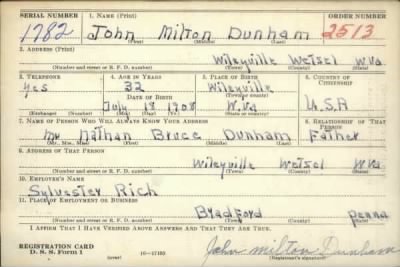 SERIAL NUMBER 1. NAME (Print) ORDER NUMBER
1782 John Milton Dunham 2513
(First) (Middle) (Last)
2. ADDRESS (Print)
Wileyville Wetzel W.Va
(Number and street or R. F. D. number) (Town) (County) (State)
3. TELEPHONE 4. AGE IN YEARS 5. PLACE OF BIRTH 6. COUNTRY OF CITIZENSHIP
Yes 32 Wileyville
DATE OF BIRTH (Town or county)
July 18 1908 W.Va U.S.A
(Exchange) (Number) (Mo.) (Day) (Yr.) (State or country)
7. NAME OF PERSON WHO WILL ALWAYS KNOW YOUR ADDRESS 8. RELATIONSHIP OF THAT PERSON
Mr Nathan Bruce Dunham Father
(Mr., Mrs., Miss) (First) (Middle) (Last)
9. ADDRESS OF THAT PERSON
Wileyville Wetzel W.Va
(Number and street or R. F. D. number) (Town) (County) (State)
10. EMPLOYER'S NAME
Sylvester Rich
11. PLACE OF EMPLOYMENT OR BUSINESS
Bradford Penna
(Number and street or R. F. D. number) (Town) (County) (State)
I AFFIRM THAT I HAVE VERIFIED ABOVE ANSWERS AND THAT THEY ARE TRUE.
REGISTRATION CARD
D. S. S. Form 1 16-17105 John Milton Dunham
(Registrant's signature)